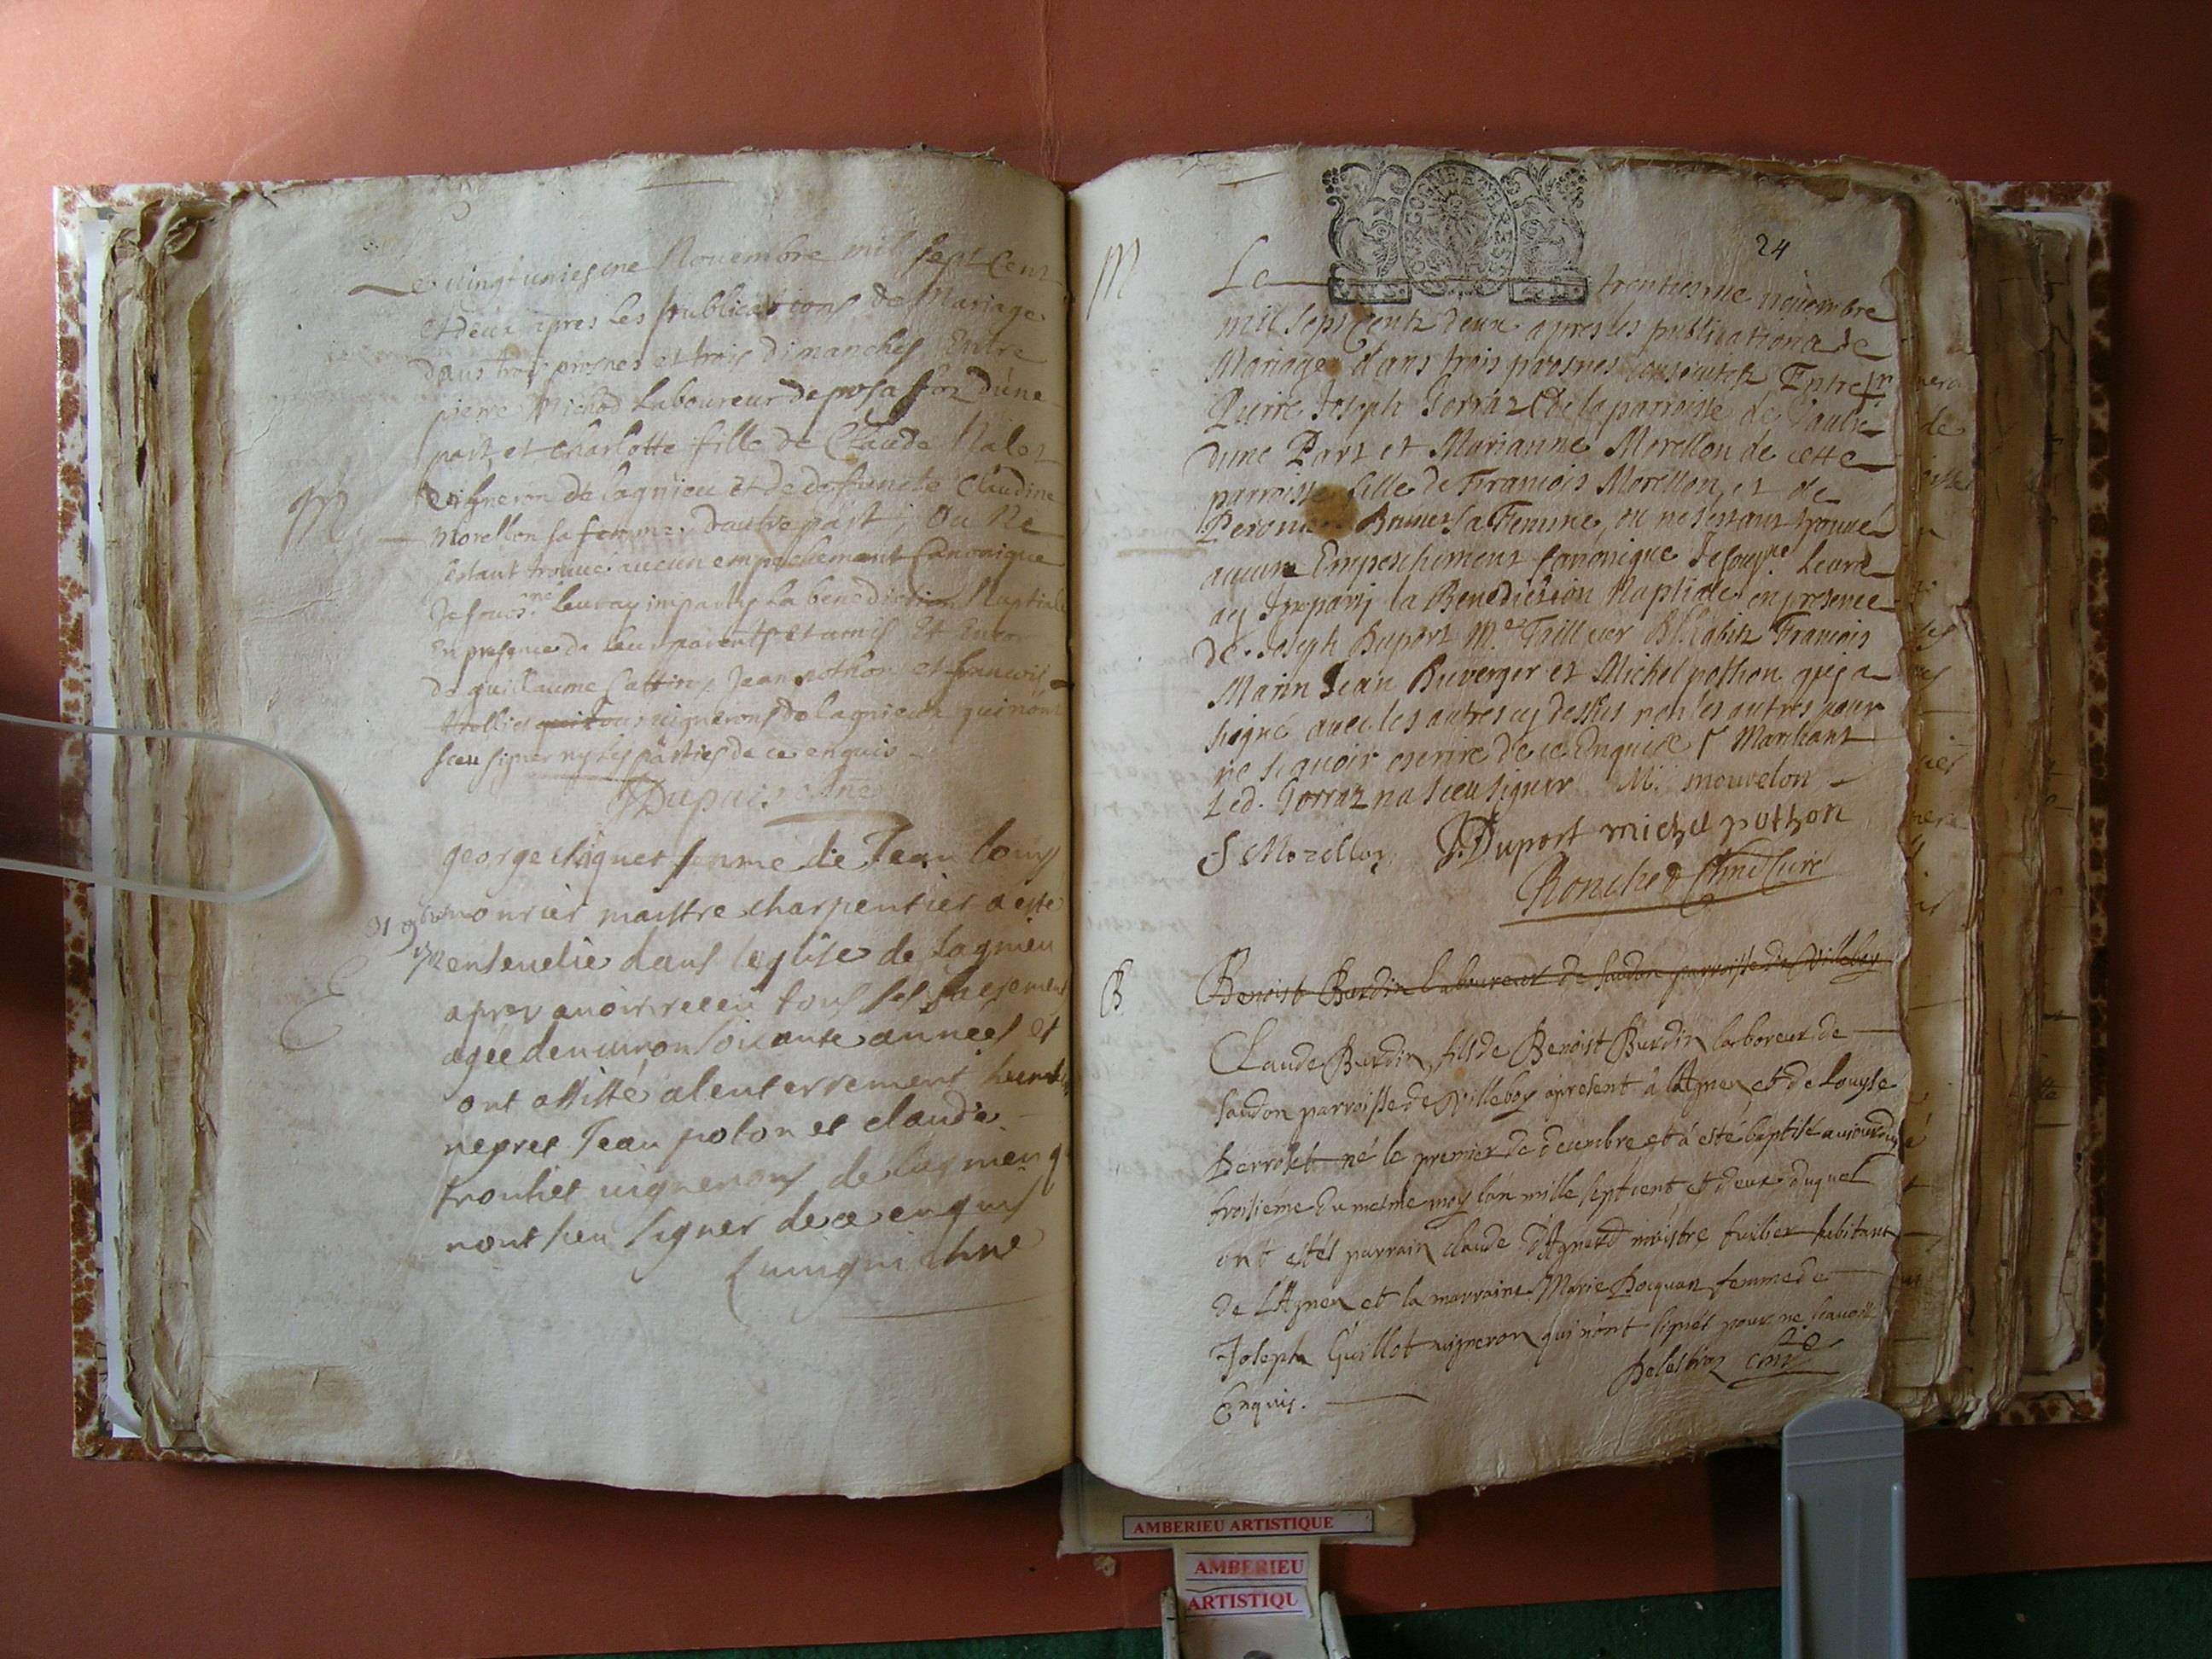 Le vingt uniesme Novembre mil sept Cent
et deux apres Les publications de Mariage
dans trois prosnes et trois dimanches Entre
pierre Michod Laboureur de posafon d'une
part, et Charlotte fille de Claude Nalet
vigneron de lagnieu Et de defuncte Claudine
M
Morellon sa femme, d'autre part, Ou Ne
s'estant trouvé aucun empeschement Canonique
Je soubs.né Leur ay imparty La benediction Nuptiale
En presence de Leurs parents et amis Et Encor
de guillaume Cattin, Jean pothon et francois
trollier vignerons de lagnieu qui n'ont
sceu signer ny les parties de ce enquis
Dupuis
george signet femme de Jean louys
mounier maistre charpentier a esté
ensevelie dans leglise de Lagnieu
E
apres avoir receu tous ses sacrements
agée denviron soixante années et
ont assisté a lenterrement
Jean poton et claude
trouilliet vignerons de Lagnieu q
nont sceu signer de ce enquis
24
M
Le trentiesme novembre
mil sept Cents deux apres les publications de
Mariage dans trois prosnes consecutifs Entre
Pierre Joseph Gorraz de la parroisse de
d'une Part et Marianne Morellon de cette
parroisse fille de Francois Morellon, et de
Brunet sa Femme, ou ne s'estant trouvé
aucun Empeschement Canonique Je soug.né Leur
ay Imparty la Benediction Nuptiale en presence
de Joseph Duport M.e Tailleur Francois
Marin Jean Buverger et Michel pothon qui a
signé avec les autres cy dessus non les autres pour
ne scavoir escrire de ce Enquise Marchant
Led. Gorraz na sceu signer M. mourelon
Morellon J. Duport michel pothon
B
Benoist Burdin Laboureur de saudon parroisse de Villeboy
Claude Burdin, fils de Benoist Burdin laboreur de
saudon parroisse de Villeboy apresent à LAgneu et de Louyse
né le premier de decembre et à esté baptisé aujourduy
troisieme du mesme moy lan mille sept cent et deux duquel
ont estés parrain claude maistre tuilier habitant
de LAgneu et la marraine Marie Bocquan femme de
Joseph Guillot vigneron qui n'ont signés pour ne scavoir
Enquis.
AMBERIEU ARTISTIQUE
AMBERIEU
ARTISTIQU